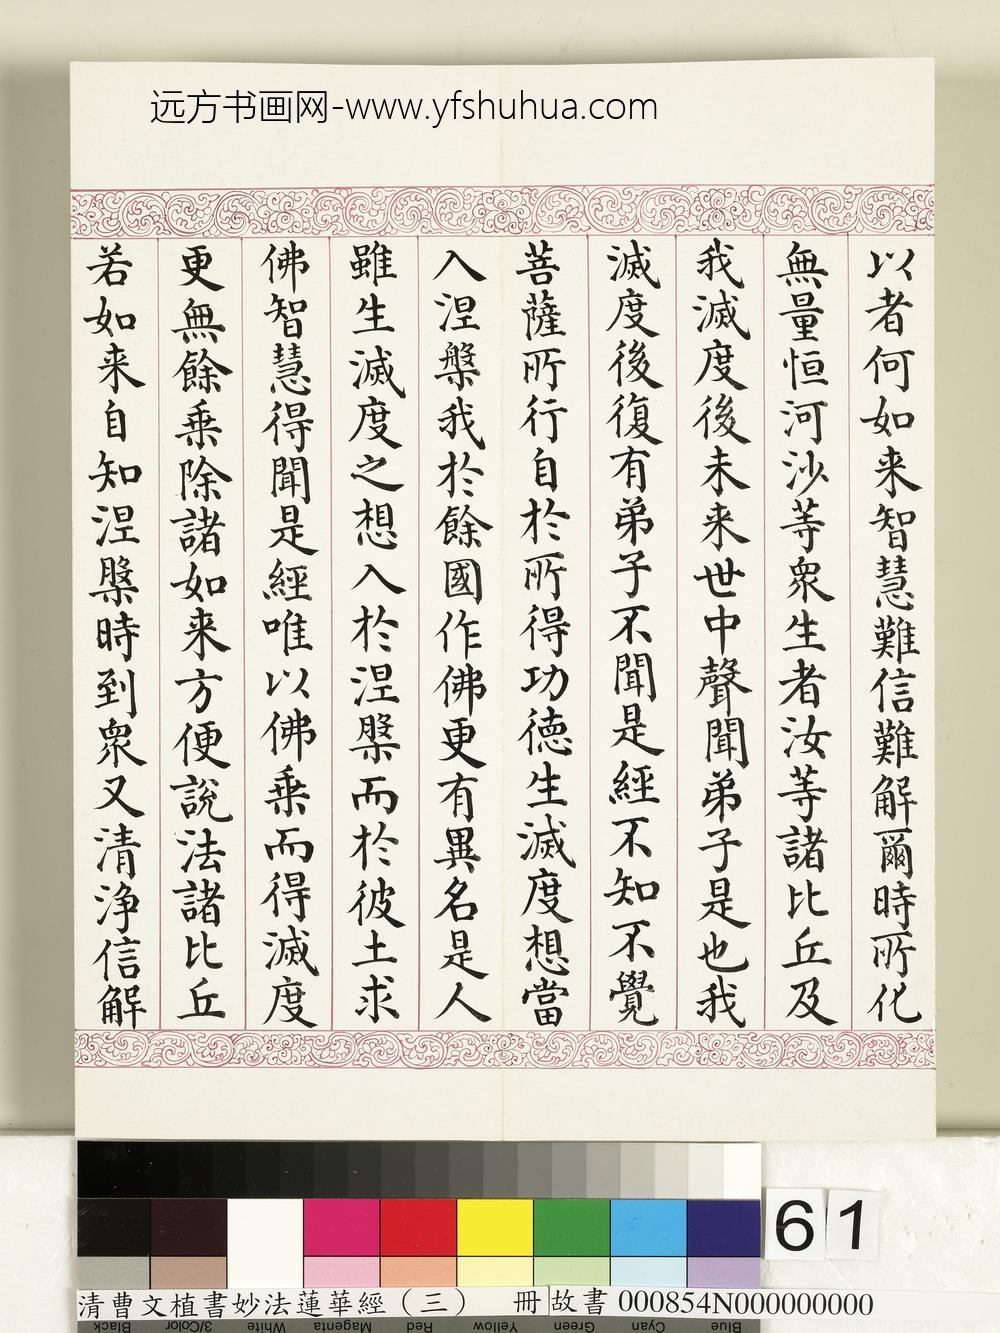 远方书画网-www.yfshuhua.com
以者何如来智慧難信難解爾時所化
無量恒河沙等衆生者汝等諸比丘及
我滅度後未来世中聲聞弟子是也我
滅度後復有弟子不聞是經不知不覺
菩薩所行自於所得功德生滅度想當
入涅槃我於餘國作佛更有異名是人
雖生滅度之想入於涅槃而於彼土求
佛智慧得聞是經唯以佛乗而得滅度
更無餘乗除諸如来方便説法諸比丘
若如来自知涅槃時到衆又清浄信解
61
清曹文植書妙法蓮華經（三） 冊 故書 000854N000000000
Black 3/Color White Magenta Red Yellow Green Cyan Blue